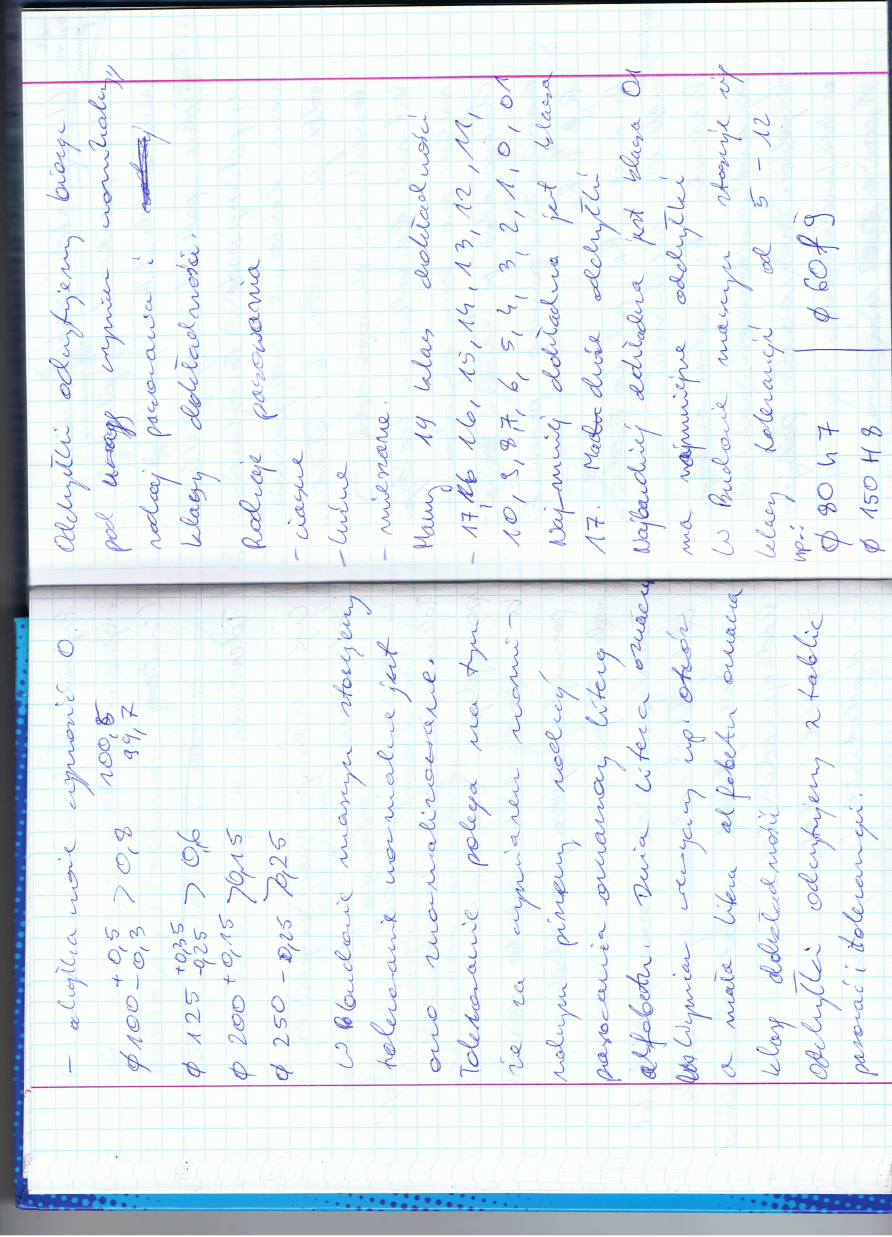 - odchyłka może wynosić 0.
ϕ100 +0,5 -0,3 > 0,8 100,5 99,7
ϕ 125 +0,35 -0,25 > 0,6
ϕ 200 +0,15 > 0,15
ϕ 250 -0,25 > 0,25
W Budowie maszyn stosujemy
tolerowanie normalne jest
ono znormalizowane.
Tolerowanie polega na tym
że za wymiarem nomi-
nalnym piszemy rodzaj
pasowania oznaczony literą
alfabetu. Duża litera oznacza
Wymiar wewnętrzny np. otwór
a mała litera alfabetu oznacza
klasy dokładność
Odchyłki odczytujemy z tablic
pasowań i tolerancji.
Odchyłki odczytujemy biorąc
pod uwagę wymiar nominalny,
rodzaj pasowania i
klasy dokładności.
Rodzaje pasowania
- ciasne
- luźne
- mieszane.
Mamy 19 klas dokładności
- 17, 16, 15, 14, 13, 12, 11,
10, 9, 8, 7, 6, 5, 4, 3, 2, 1, 0, 01
Najmniej dokładna jest klasa
17. Ma duże odchyłki
Najbardziej dokładna jest klasa 01
ma najmniejsze odchyłki
W Budowie maszyn stosuje się
klasy tolerancji od 5 - 12
np.:
ϕ 80 h 7 | ϕ 60 f 9
ϕ 150 H 8